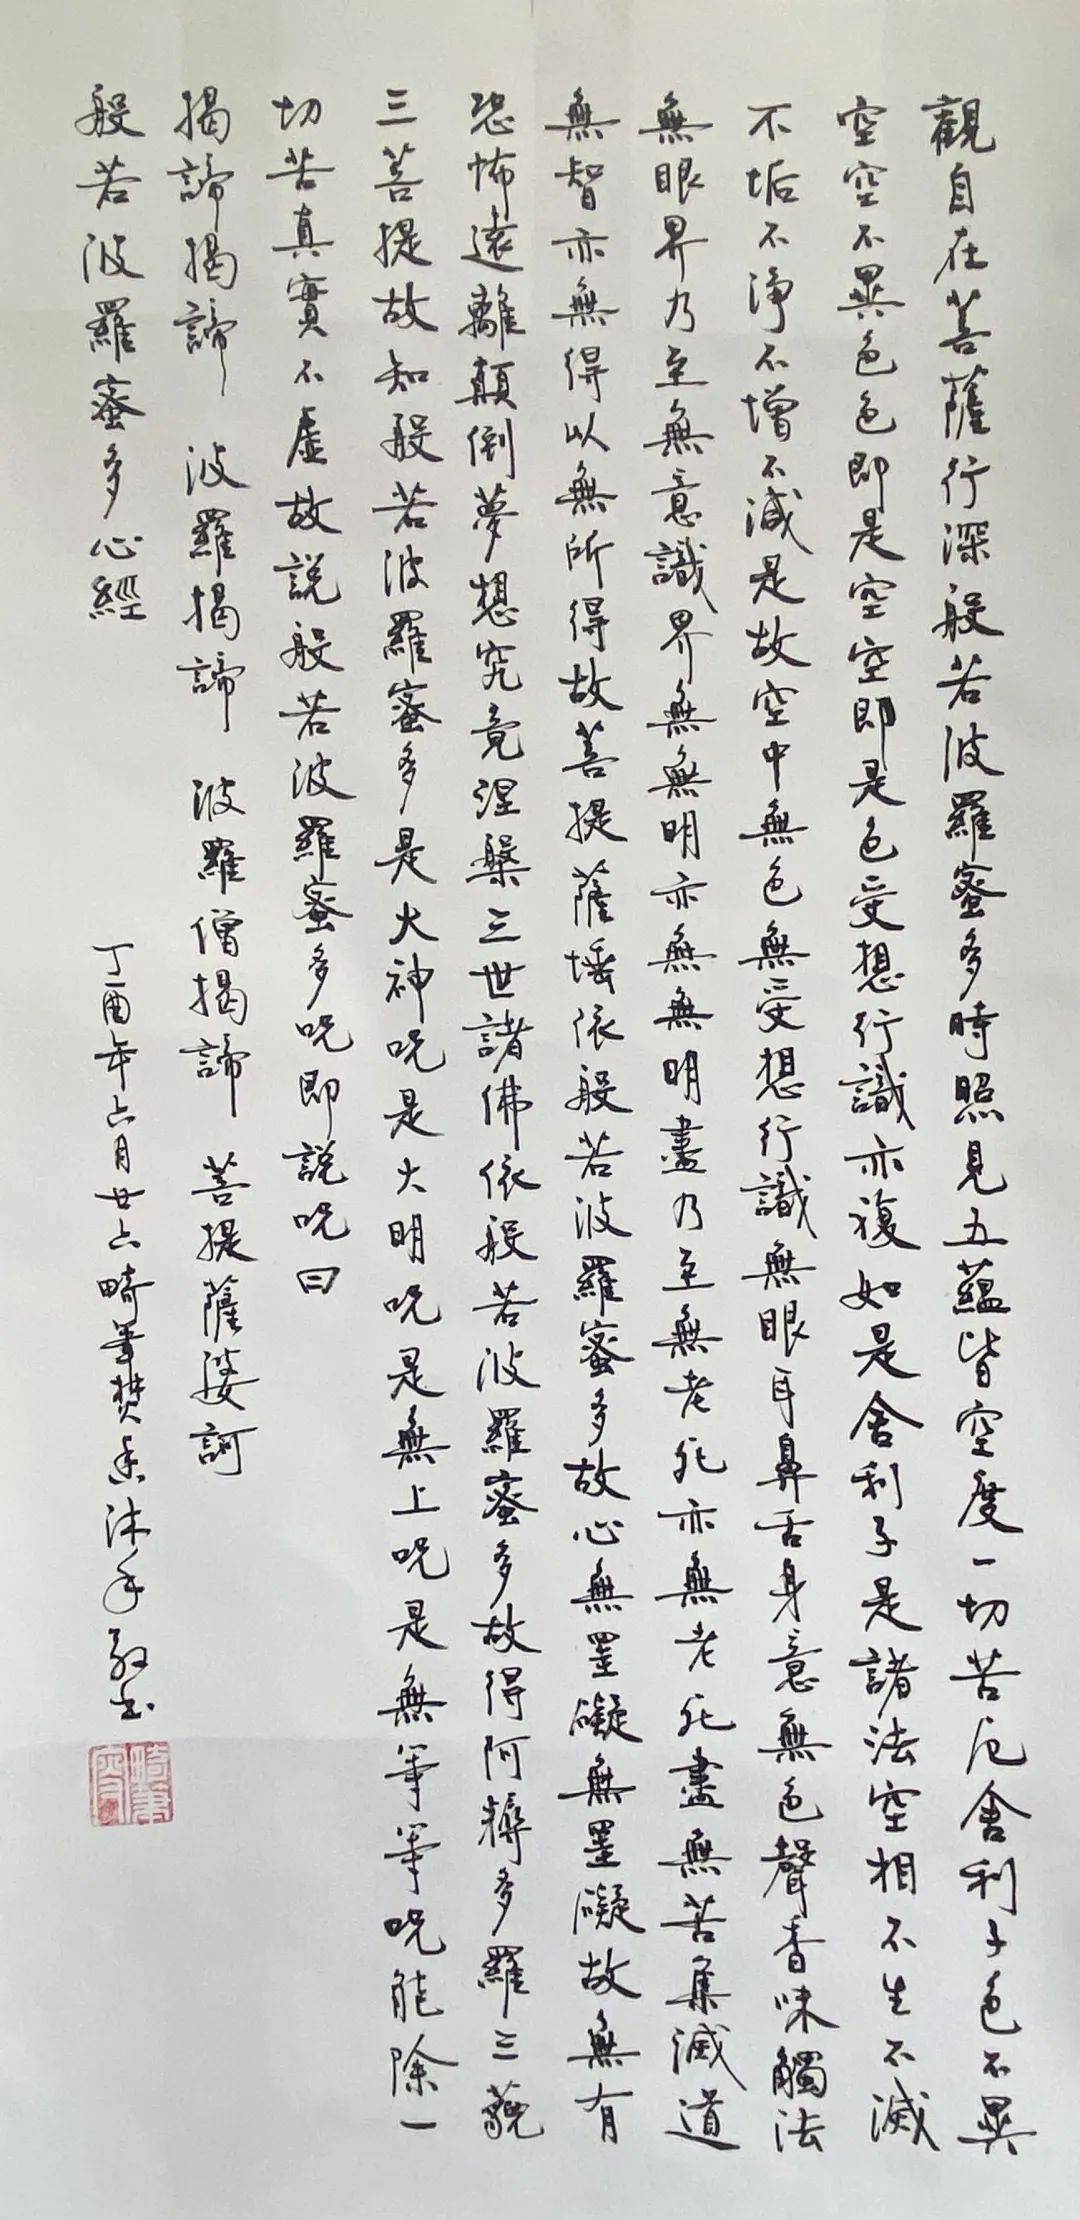 觀自在菩薩行深般若波羅蜜多時照見五蘊皆空度一切苦厄舍利子色不異
空空不異色色即是空空即是色受想行識亦復如是舍利子是諸法空相不生不滅
不垢不淨不增不減是故空中無色無受想行識無眼耳鼻舌身意無色聲香味觸法
無眼界乃至無意識界無無明亦無無明盡乃至無老死亦無老死盡無苦集滅道
無智亦無得以無所得故菩提薩埵依般若波羅蜜多故心無罣礙無罣礙故無有
恐怖遠離顛倒夢想究竟涅槃三世諸佛依般若波羅蜜多故得阿耨多羅三藐
三菩提故知般若波羅蜜多是大神咒是大明咒是無上咒是無等等咒能除一
切苦真實不虛故説般若波羅蜜多咒即説咒曰
揭諦揭諦 波羅揭諦 波羅僧揭諦 菩提薩婆訶
般若波羅蜜多心經
丁酉年六月廿六畸筆焚香沐手敬書